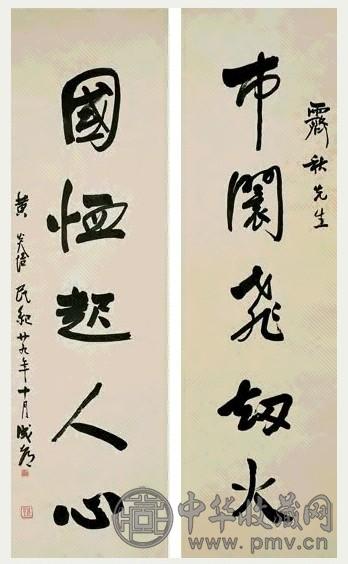 霽秋先生
市闤飛劫火
國恤起人心
黄炎培 民紀廿九年十月成都
中华收藏网
www.pmv.cn